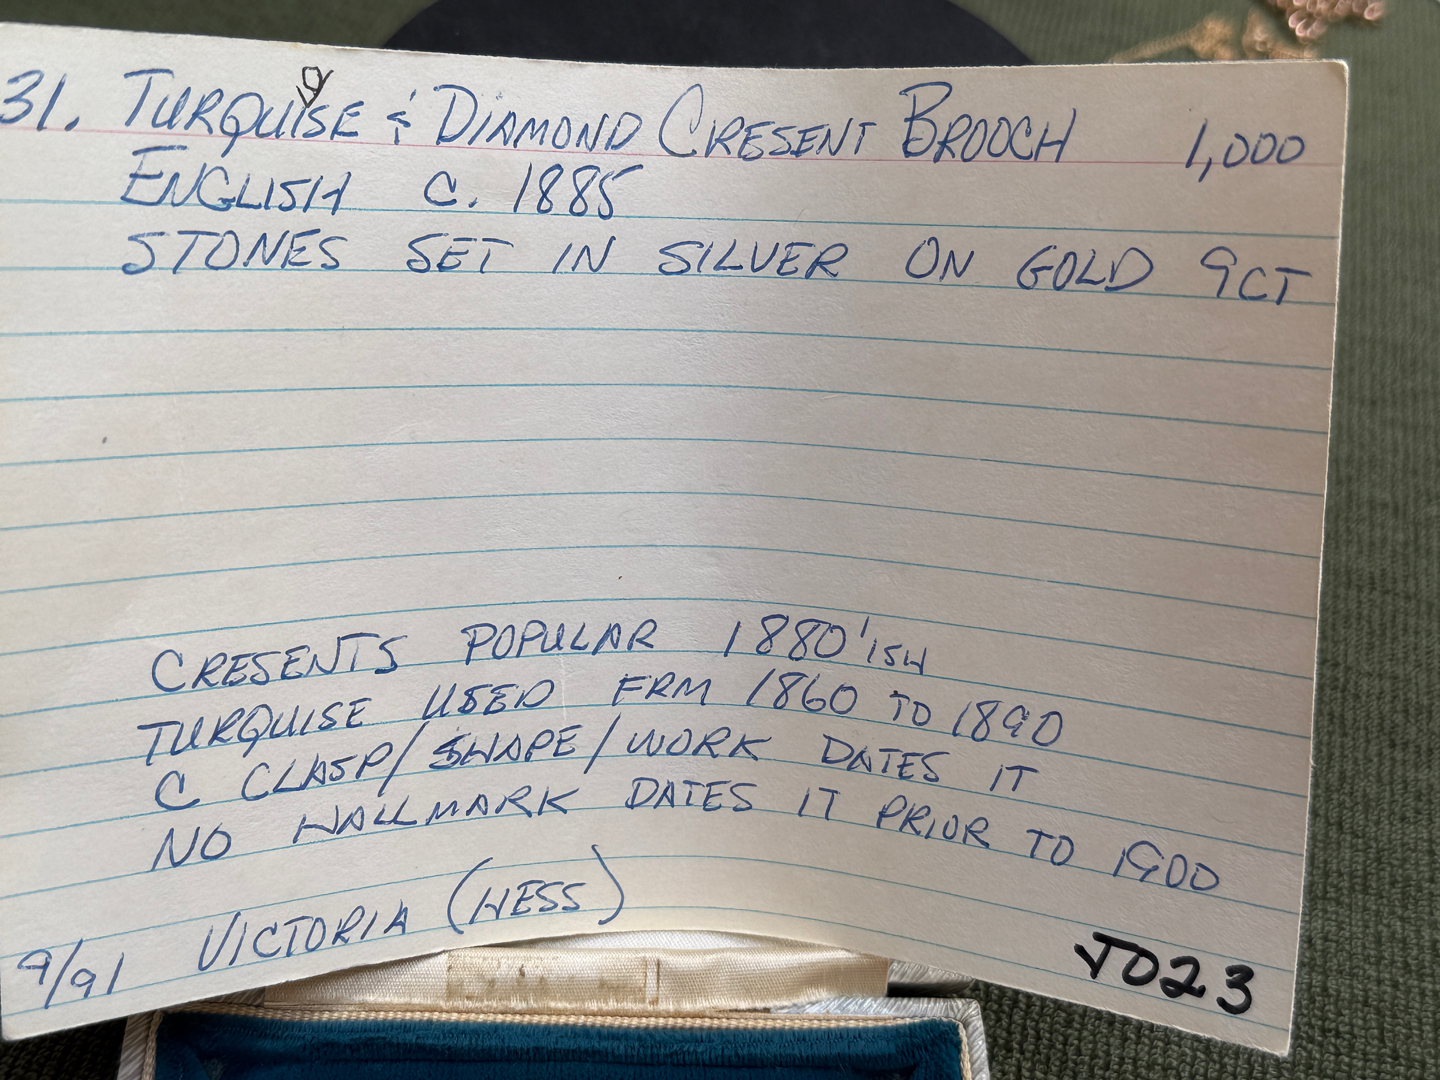 31. TURQUOISE & DIAMOND CRESENT BROOCH 1,000
ENGLISH C. 1885
STONES SET IN SILVER ON GOLD 9CT
CRESENTS POPULAR 1880'ISH
TURQUISE USED FRM 1860 TO 1890
C CLASP/SHAPE/WORK DATES IT
NO HALLMARK DATES IT PRIOR TO 1900
9/91 VICTORIA (HESS)
J023